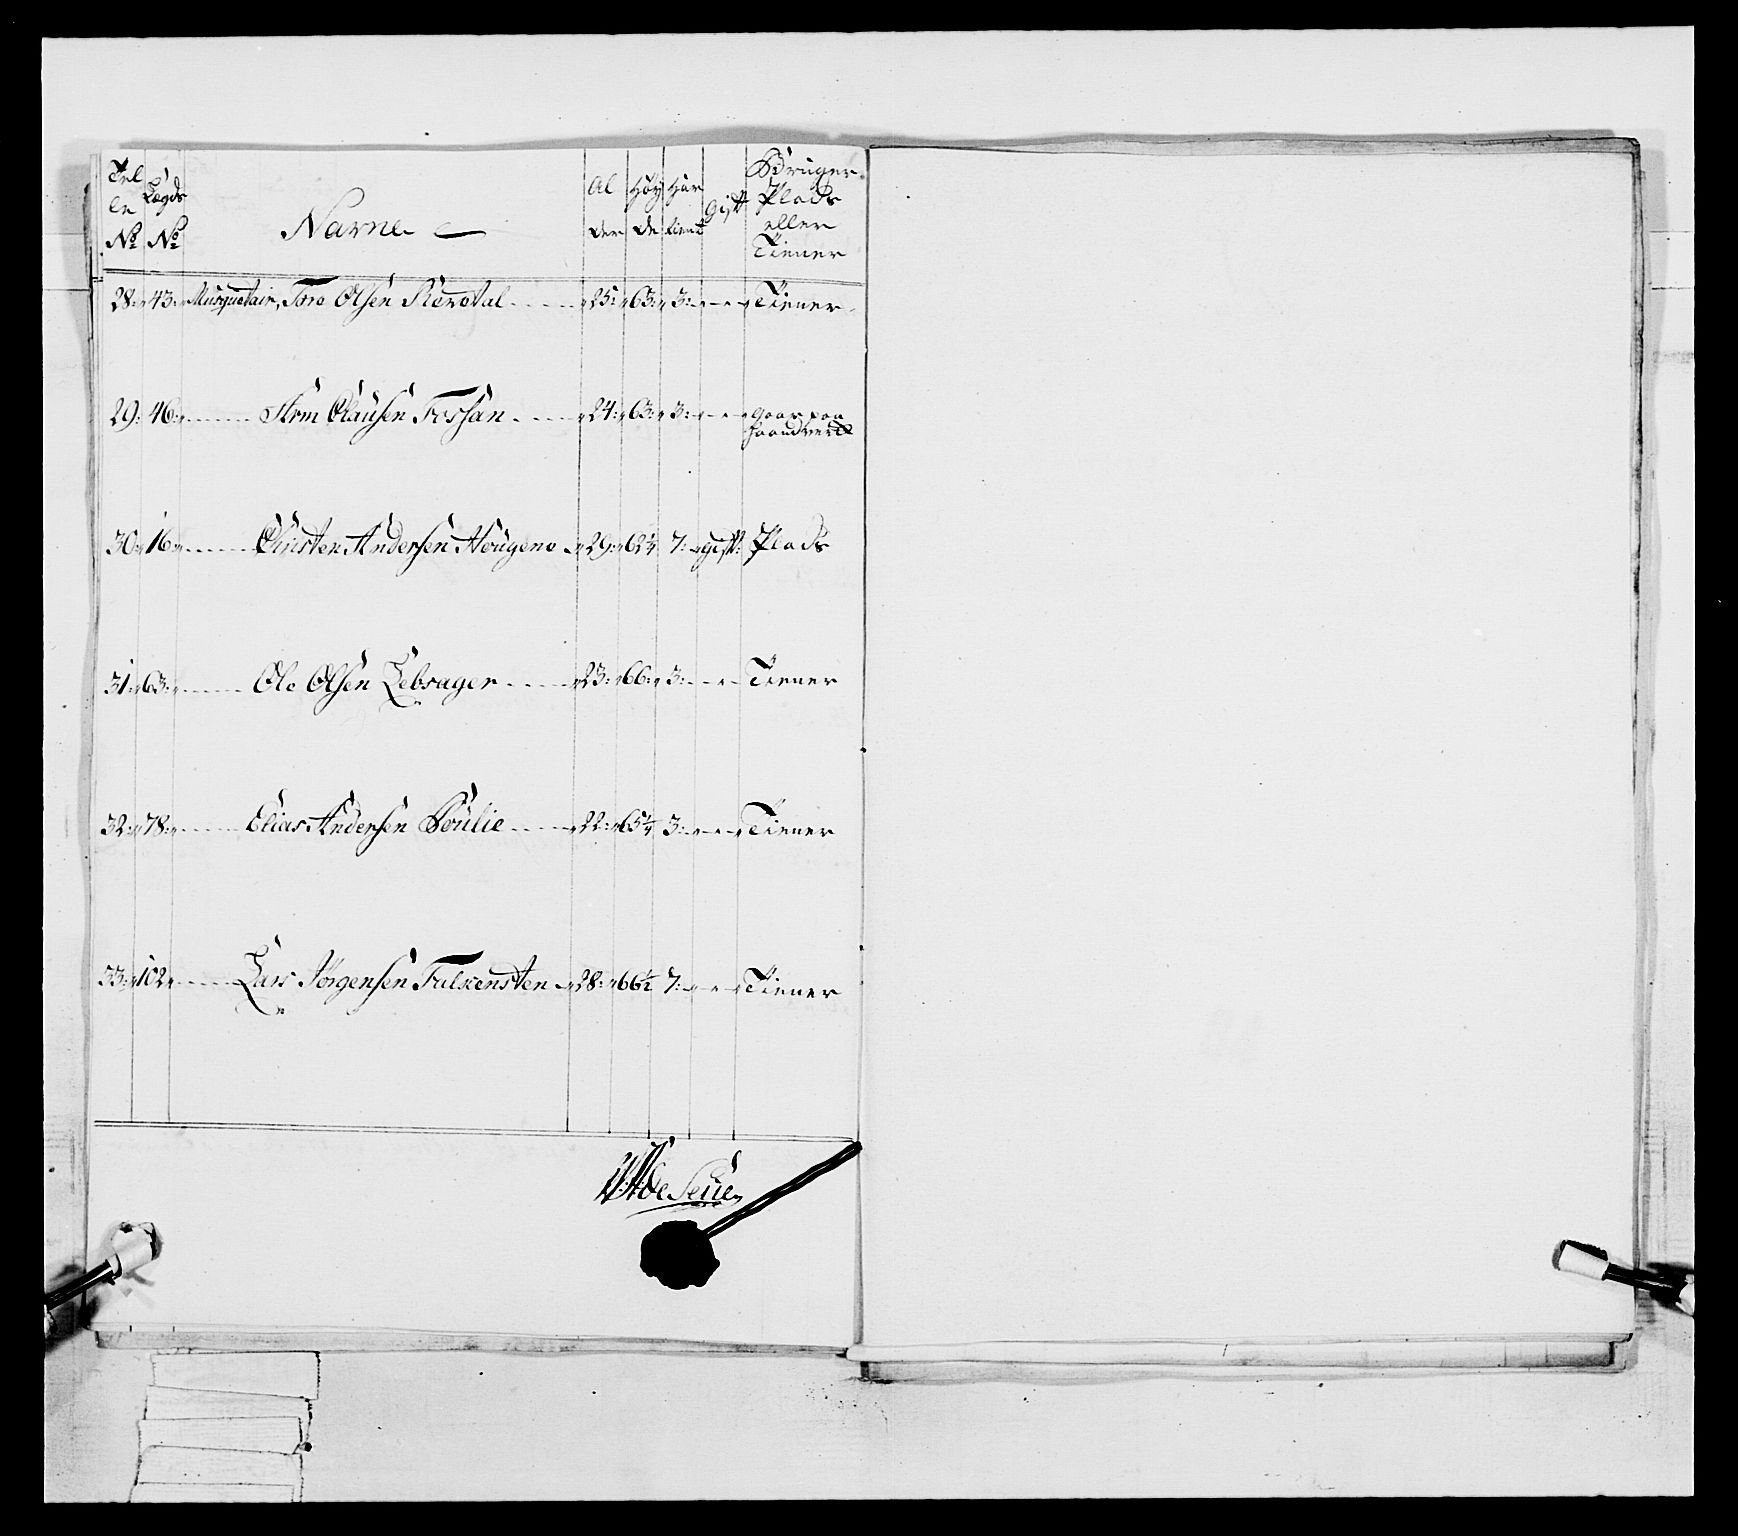 Tel le No Lægds No Navne Al der Høy de Har tient Gift Bruger Plads eller Tiener
28: 43: Musquetair, Tore Olsen 25: 63: 3: Tiener
29: 46: Clausen Fossan 24: 63: 3: gaar paa
haandverk
30: 16: Christen Andersen Hougene 29: 62 1/4 7: gift: Plads
31: 63: Ole Olsen Lebsager 23: 66: 3: Tiener
32: 78: Elias Andersen Boulie 22: 65 1/4 3: Tiener
33: 102: Lars Jørgensen Falkensten 28: 66 1/2 7: Tiener
de Seue